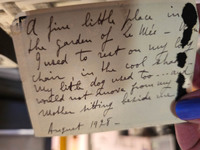 A fine little place in
the garden of le Mis -
I used to rest on my long
chair, in the cool shade
my little dog used too ... and
would not move from
Mother sitting beside me
August 1928 -